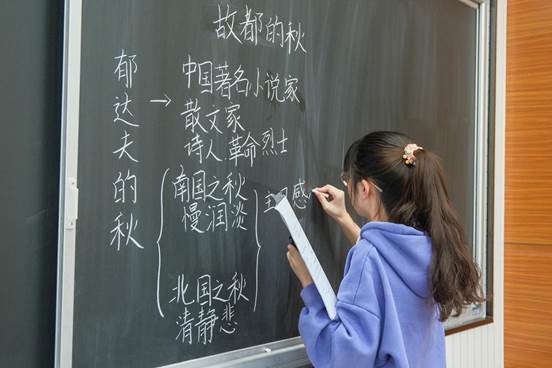 故都的秋
郁达夫的秋
→
中国著名小说家
散文家
诗人.革命烈士
南国之秋
慢润淡
北国之秋
清静悲
感